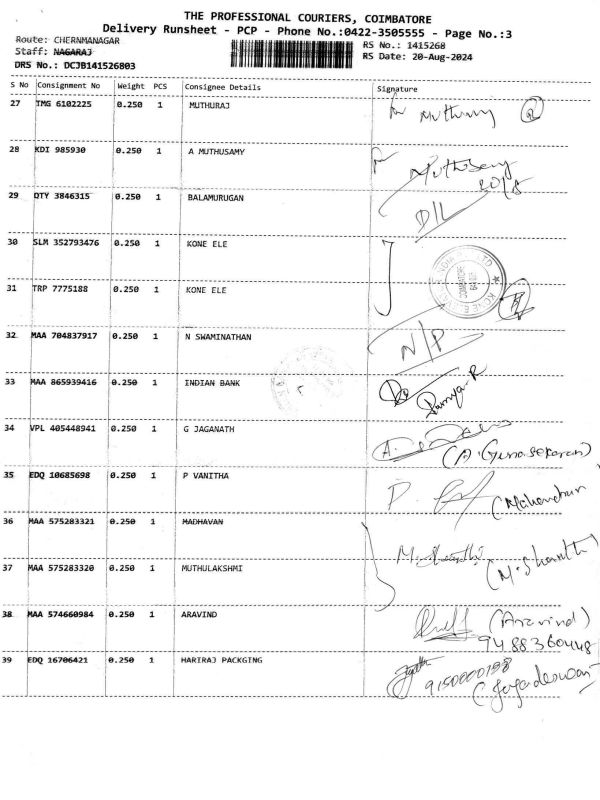 THE PROFESSIONAL COURIERS, COIMBATORE
Delivery Runsheet - PCP - Phone No.:0422-3505555 - Page No.:3
Route: CHERNMANAGAR
RS No.: 1415268
Staff: NAGARAJ
RS Date: 20-Aug-2024
DRS No.: DCJB141526803
S No Consignment No Weight PCS Consignee Details Signature
27 TMG 6102225 0.250 1 MUTHURAJ
28 KDI 985930 0.250 1 A MUTHUSAMY
29 DTY 3846315 0.250 1 BALAMURUGAN D/L
30 SLM 352793476 0.250 1 KONE ELE
31 TRP 7775188 0.250 1 KONE ELE
32 MAA 704837917 0.250 1 N SWAMINATHAN N/P
33 MAA 865939416 0.250 1 INDIAN BANK Ramya.R
34 VPL 405448941 0.250 1 G JAGANATH (A.Gunasekaran)
35 EDQ 10685698 0.250 1 P VANITHA
36 MAA 575283321 0.250 1 MADHAVAN
37 MAA 575283320 0.250 1 MUTHULAKSHMI (M.Shanthi
38 MAA 574660984 0.250 1 ARAVIND (Aravind)
9488360448
39 EDQ 16706421 0.250 1 HARIRAJ PACKGING 9150000198